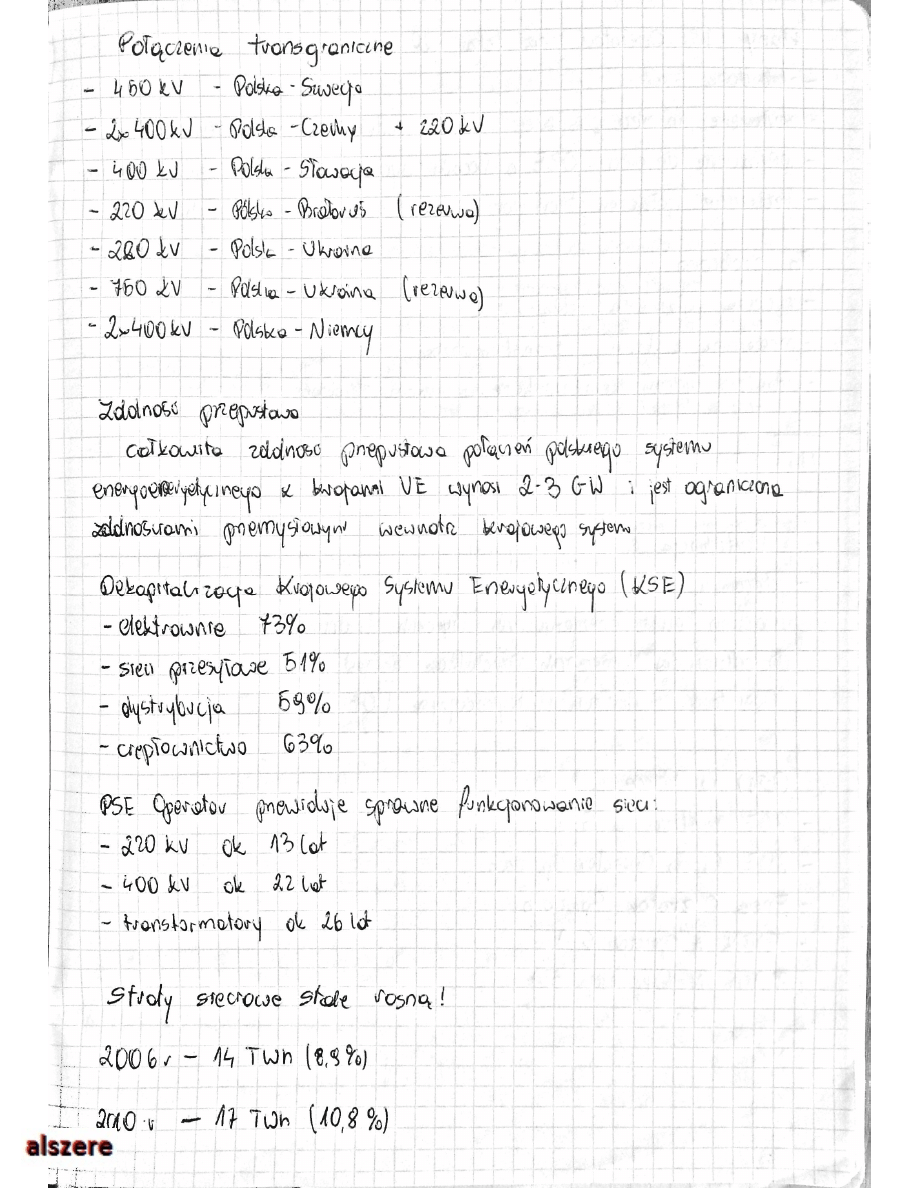 Połączenia transgraniczne
- 450 kV - Polska - Szwecja
- 2x400kV - Polska - Czechy + 220 kV
- 400 kV - Polska - Słowacja
- 220 kV - Polska - Białoruś (rezerwa)
- 220 kV - Polsk - Ukraina
- 750 kV - Polska - Ukraina (rezerwa)
- 2x400kV - Polska - Niemcy
Zdolność przepustowa
całkowita zdolność przepustowa połączeń polskiego systemu
z krajami UE wynosi 2-3 GW i jest ograniczona
zdolnościami przemysłowymi wewnątrz krajowego system
Dekapitalizacja Krajowego Systemu Energetycznego (KSE)
- elektrownie 73%
- sieci przesyłowe 51%
- dystrybucja 59%
- ciepłownictwo 63%
PSE Operator przewiduje sprawne funkcjonowanie sieci:
- 220 kV ok 13 lat
- 400 kV ok 22 lat
- transformatory ok 26 lat
Straty sieciowe stale rosną!
2006r - 14 TWh (8,9%)
2010 r - 17 TWh (10,8%)
alszere